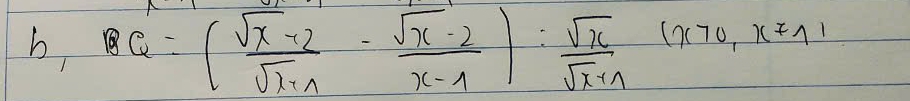 b, Q = ( (√x + 2)/(√x + 1) - (√x - 2)/(x - 1) ) : √x/(√x + 1) (x > 0, x ≠ 1)